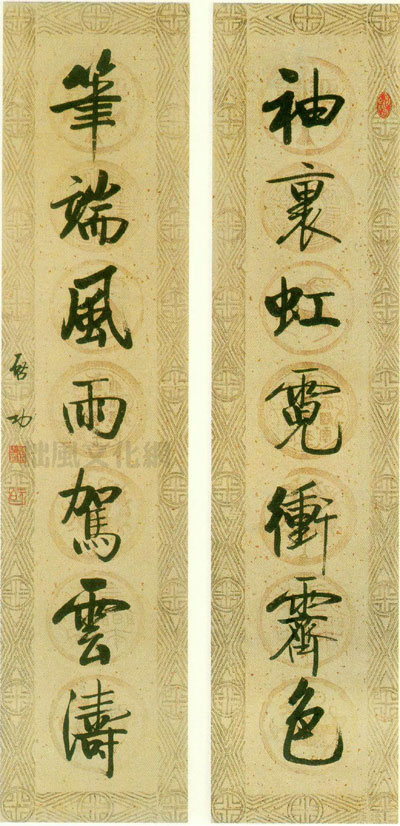 袖裏虹霓衝霽色
筆端風雨駕雲濤
啟功
拙風文化網